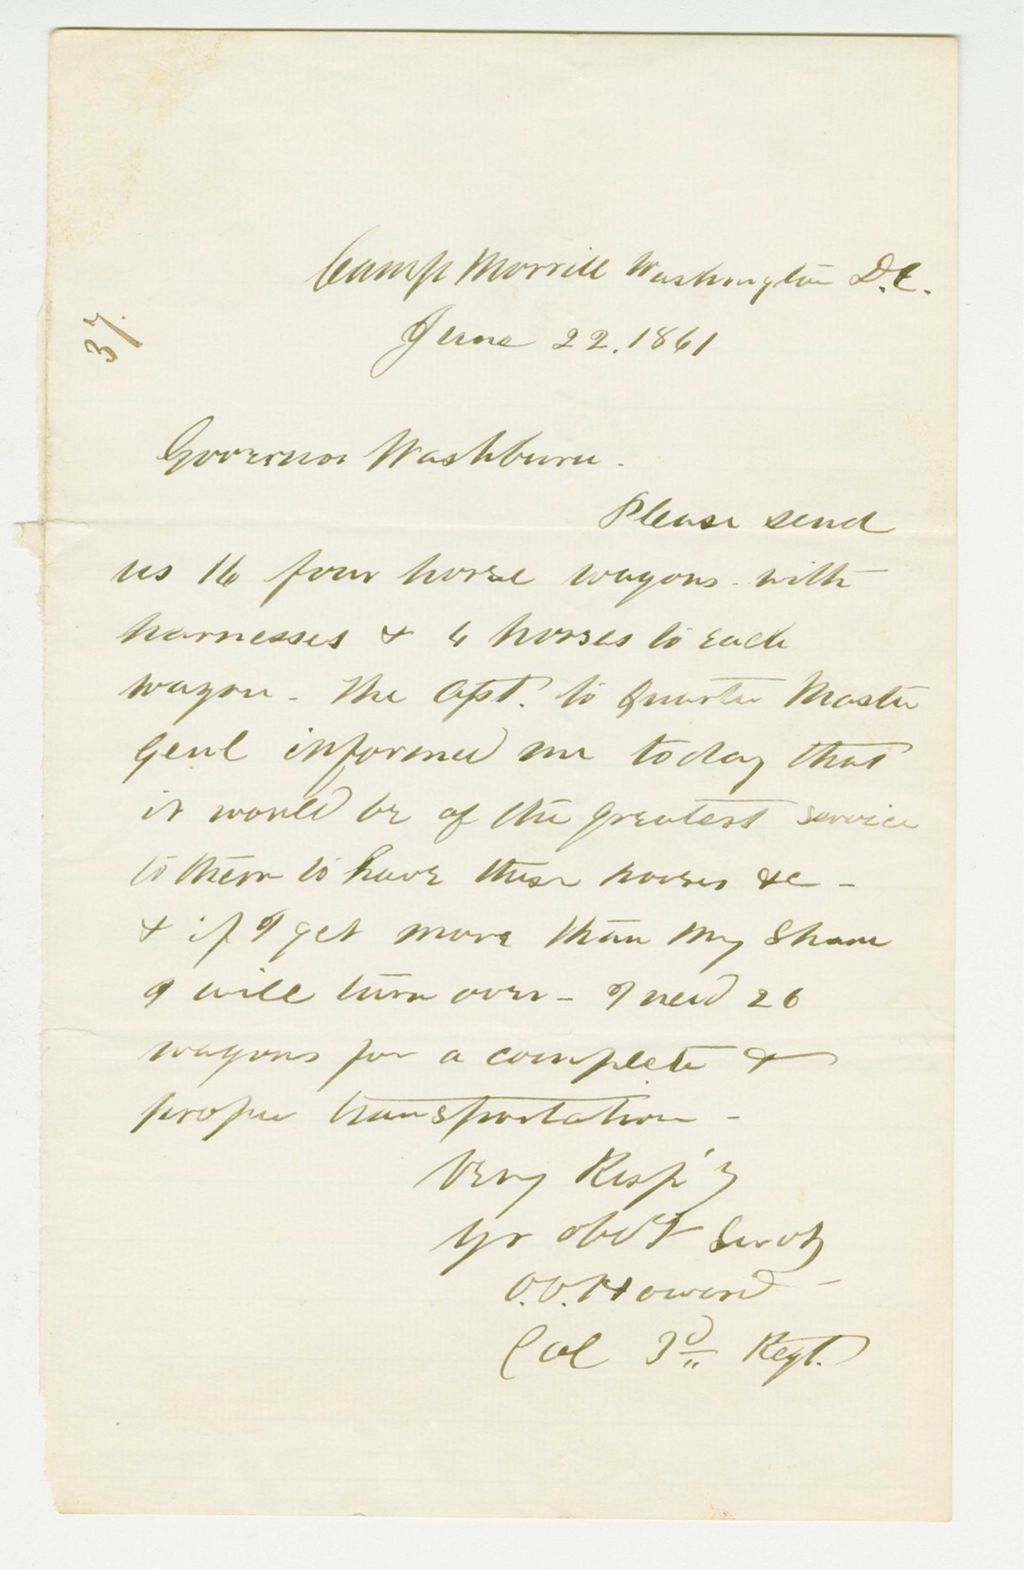 Camp Morrill Washington D.C.
June 22. 1861
37.
Governor Washburn.
Please send
us 16 four horse wagons with
harnesses & 4 horses to each
wagon - The Asst. to Quarter Master
Genl informed me today that
it would be of the greatest service
to them to have these horses &c -
& if I get more than my share
I will turn over - I need 26
wagons for a complete &
proper transportation -
Very Resp'y
Yr obd't Servt
O.O. Howard -
Col 3d Regt.